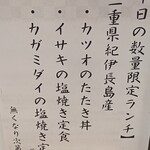 日の数量限定ランチ】
重県紀伊長島産
・カツオのたたき丼
・イサキの塩焼き定食
・カガミダイの塩焼き定
無くなり次第